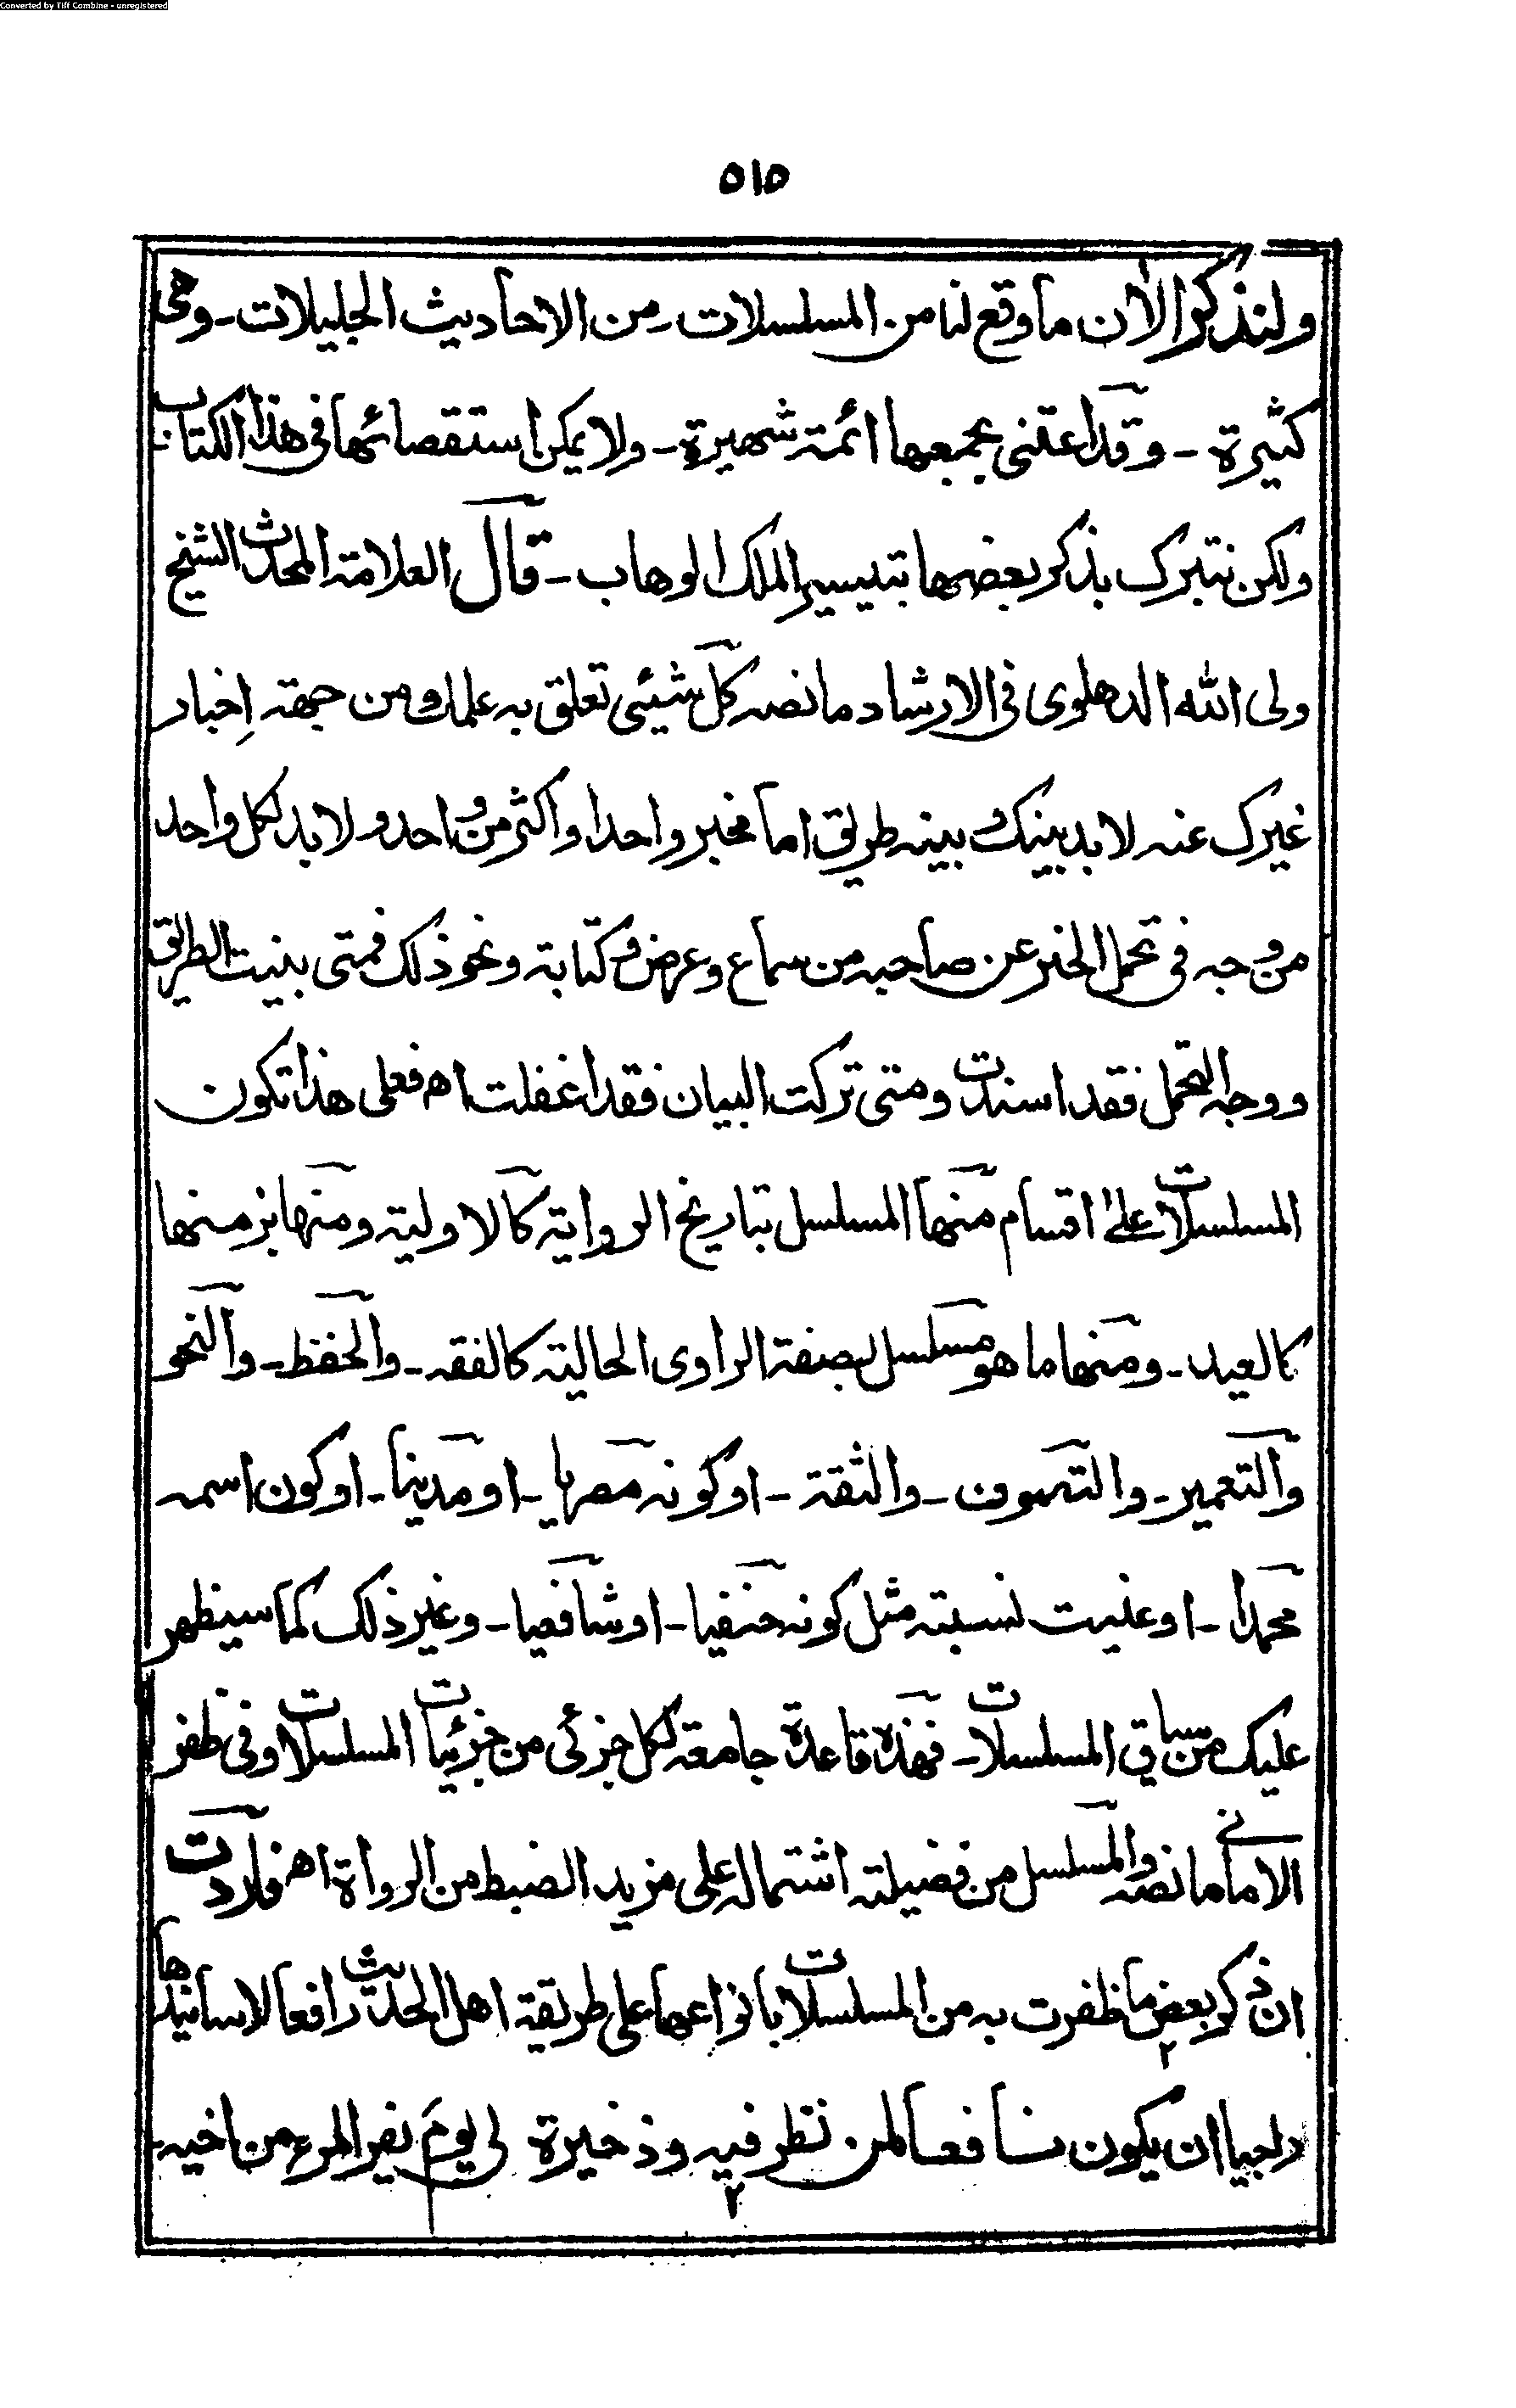 Converted by Tiff Combine - unregistered
٥١٥
ولنذكر الأن ما وقع لنا من المسلسلات ـ من الاحاديث الجليلات ـ وهى
كثيرة ـ وقد اعتنى بجمعها ائمة شهيرة ـ ولا يمكن استقصائها فى هذا الكتاب
ولكن نتبرك بذكر بعضها بتيسير الملك الوهاب ـ قال العلامة المحدث الشيخ
ولى الله الدهلوى فى الارشاد ما نصه كل شيئى تعلق به علمك ومن جهة إخبار
غيرك عنه لا بد بينك وبينه طريق اما مخبر واحد او اكثر من واحد ولا بد لكل واحد
من وجه فى تحمل الخبر عن صاحبه من سماع وعرض وكتابة ونحو ذلك فمتى بينت الطريق
ووجه التحمل فقد اسندت ومتى تركت البيان فقد اغفلت اه فعلى هذا تكون
المسلسلات على اقسام منها المسلسل بتاريخ الرواية كالاولية ومنها بزمنها
كالعيد ـ ومنها ما هو مسلسل بصفة الراوى الحالية كالفقه ـ والحفظ ـ والنحو
والتعمير ـ والتصوف ـ والثقة ـ او كونه مصريا ـ او مدينا ـ او كون اسمه
محمدا ـ او نسبته مثل كونه حنفيا ـ او شافعيا ـ وغير ذلك كما سيظهر
عليك من سياق المسلسلات ـ فهذه قاعدة جامعة لكل جزئى من جزئيات المسلسلات وفى ظفر
الامانى ما نصه والمسلسل من فضيلته اشتماله على مزيد الضبط من الرواة اه فاردت
ان ذكر بعض ما ظفرت به من المسلسلات بانواعها على طريقة اهل الحديث رافعا لاسانيدها
راجيا ان يكون نافعا لمن نظر فيه وذخيرة لى يوم يفر المرء من اخيه